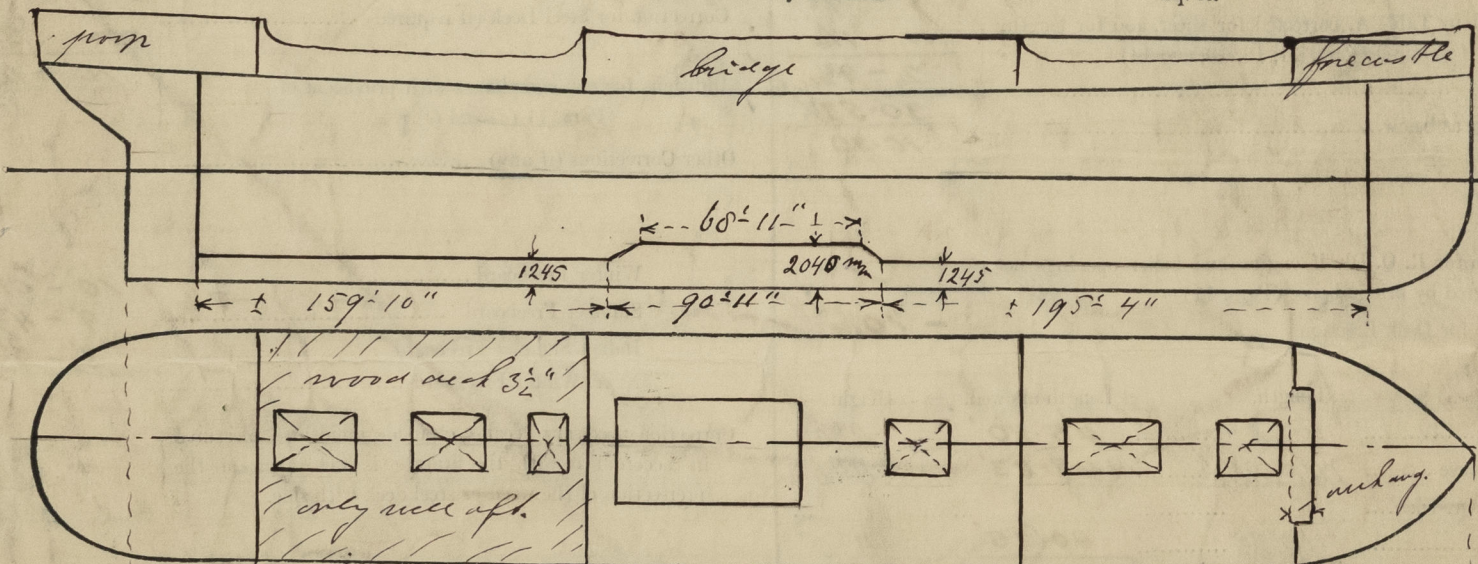 poop
bridge
forecastle
68'-11"
1245
2040 m/m
1245
± 159'-10"
90'-11"
± 195'-4"
wood deck 3½"
only well aft.
overhang.